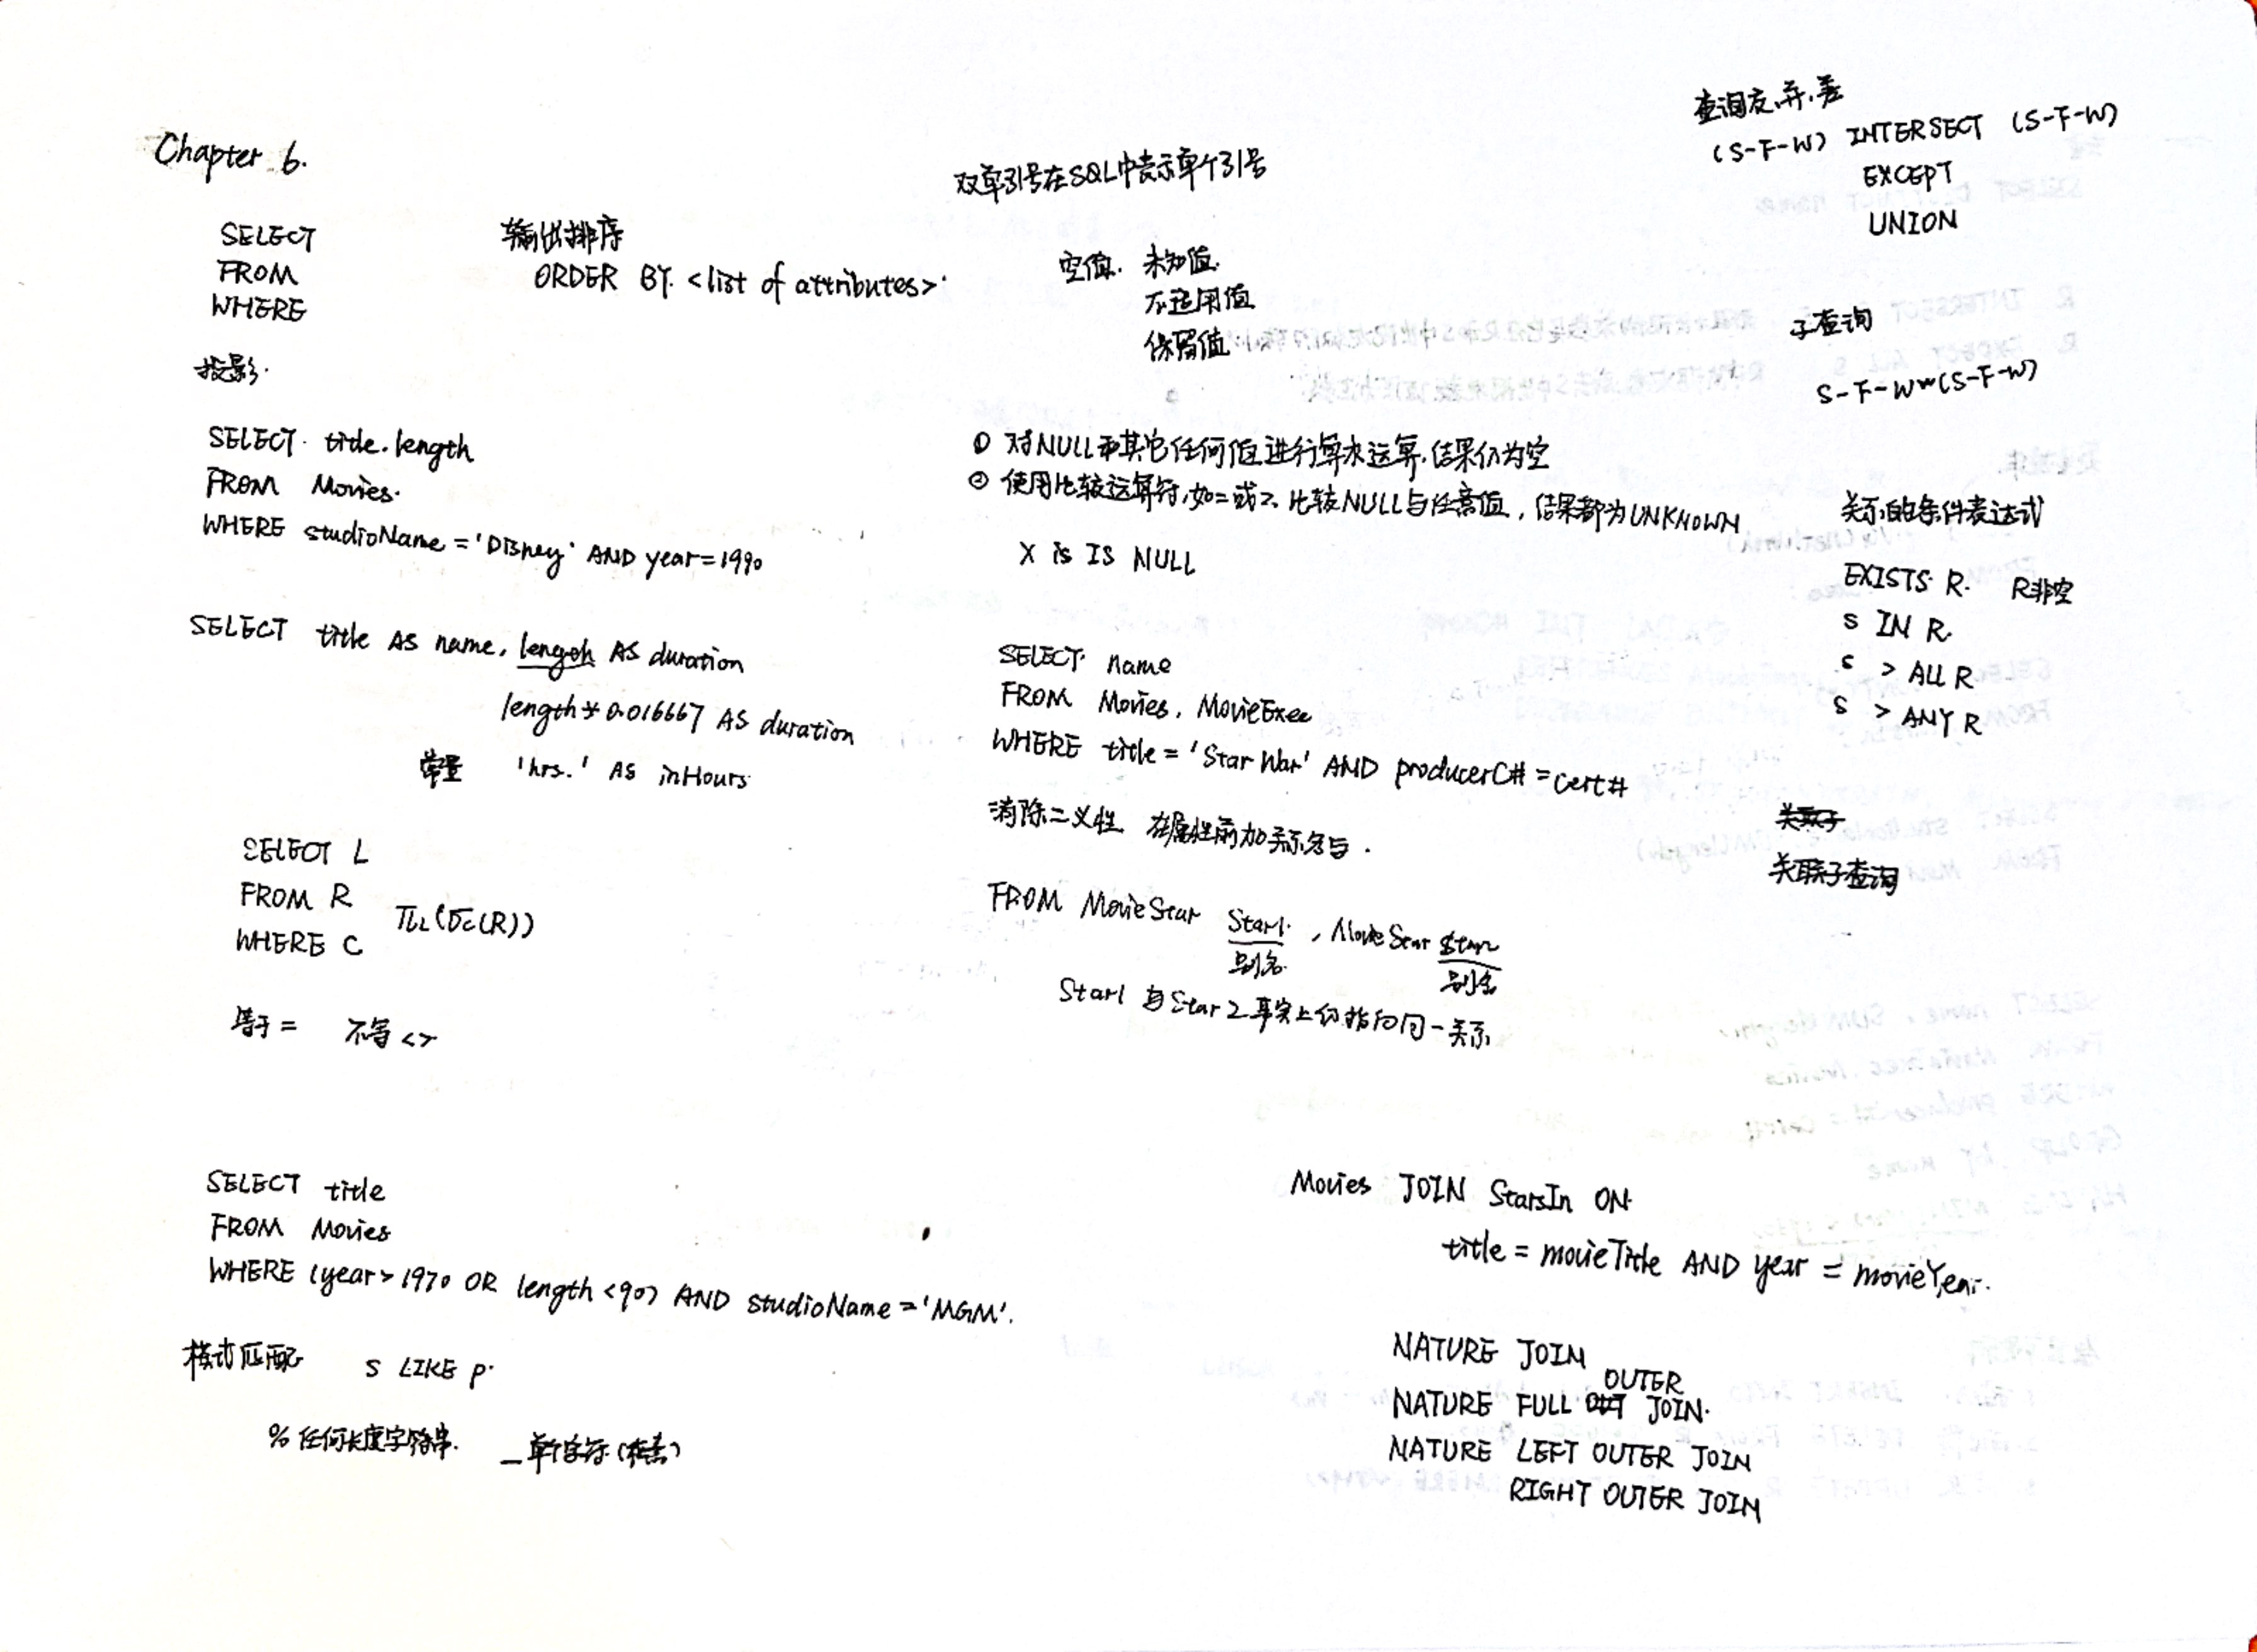 Chapter 6.
SELECT
FROM
WHERE
输出排序
ORDER BY. <list of attributes>
投影.
SELECT. title.length
FROM Movies.
WHERE studioName = 'Disney' AND year = 1990
SELECT title AS name, length AS duration
length * 0.016667 AS duration
常量 'hrs.' AS inHours
SELECT L
FROM R
WHERE C
πL(σC(R))
等于 = 不等 <>
SELECT title
FROM Movies
WHERE (year > 1970 OR length < 90) AND studioName = 'MGM'.
模式匹配 s LIKE p.
% 任何长度字符串. _ 单个字符
双单引号在SQL中表示单个引号
空值. 未知值.
不适用值
保留值
① 对NULL和其它任何值进行算术运算,结果仍为空
② 使用比较运算符,如=或>, 比较NULL与任意值,结果都为UNKNOWN
X is IS NULL
SELECT. name
FROM Movies, MovieExec
WHERE title = 'Star War' AND producerC# = cert#
消除二义性 在属性前加关系名与.
FROM MovieStar Star1. , MovieStar Star2
别名. 别名
Star1 与 Star2 事实上仍指向同一关系
Movies JOIN StarsIn ON
title = movieTitle AND year = movieYear.
NATURE JOIN
NATURE FULL OUTER JOIN.
NATURE LEFT OUTER JOIN
RIGHT OUTER JOIN
查询交.并.差
(S-F-W) INTERSECT (S-F-W)
EXCEPT
UNION
子查询
S-F-W(S-F-W)
关系的条件表达式
EXISTS R. R非空
s IN R.
s > ALL R
s > ANY R
关联子查询